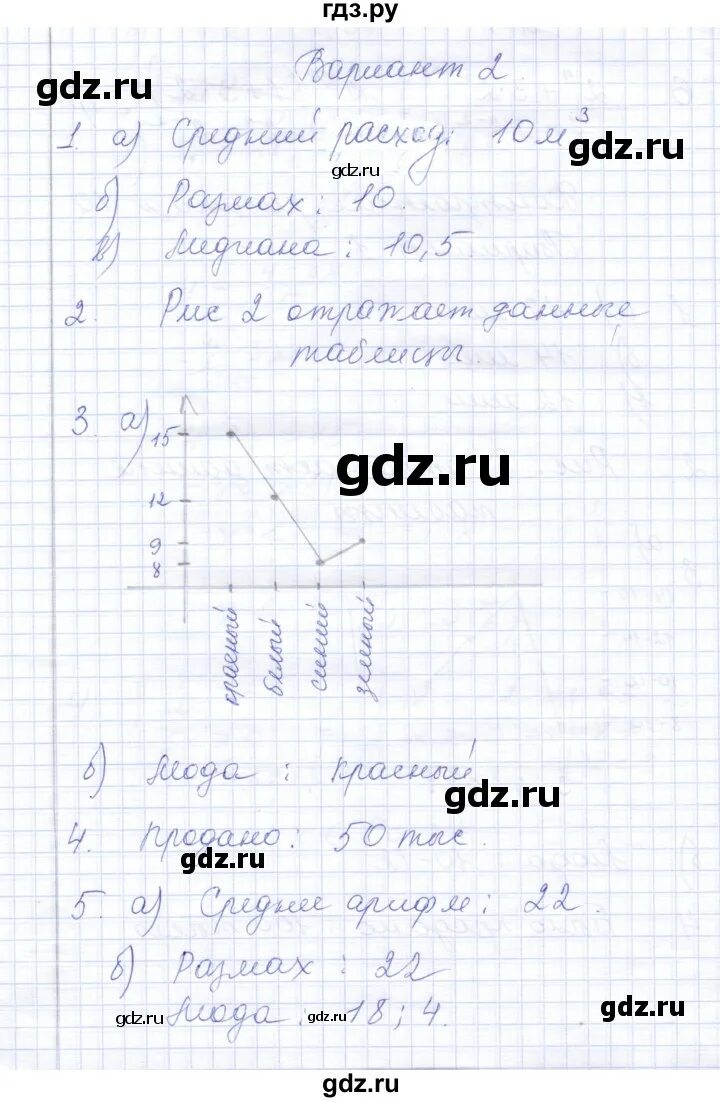 гдз.ру
Вариант 2.
gdz.ru
gdz.ru
1. а) Средний расход: 10 м³
gdz.ru
б) Размах: 10.
в) Медиана: 10,5.
gdz.ru
gdz.ru
2. Рис 2 отражает данные
таблицы.
3. а)
15
12
9
8
gdz.ru
красный
белый
синий
зеленый
б) Мода: красный
gdz.ru
4. Продано: 50 тыс.
gdz.ru
5. а) Среднее арифм: 22.
б) Размах: 22
Мода: 18; 4.
gdz.ru
gdz.ru
gdz.ru
gdz.ru